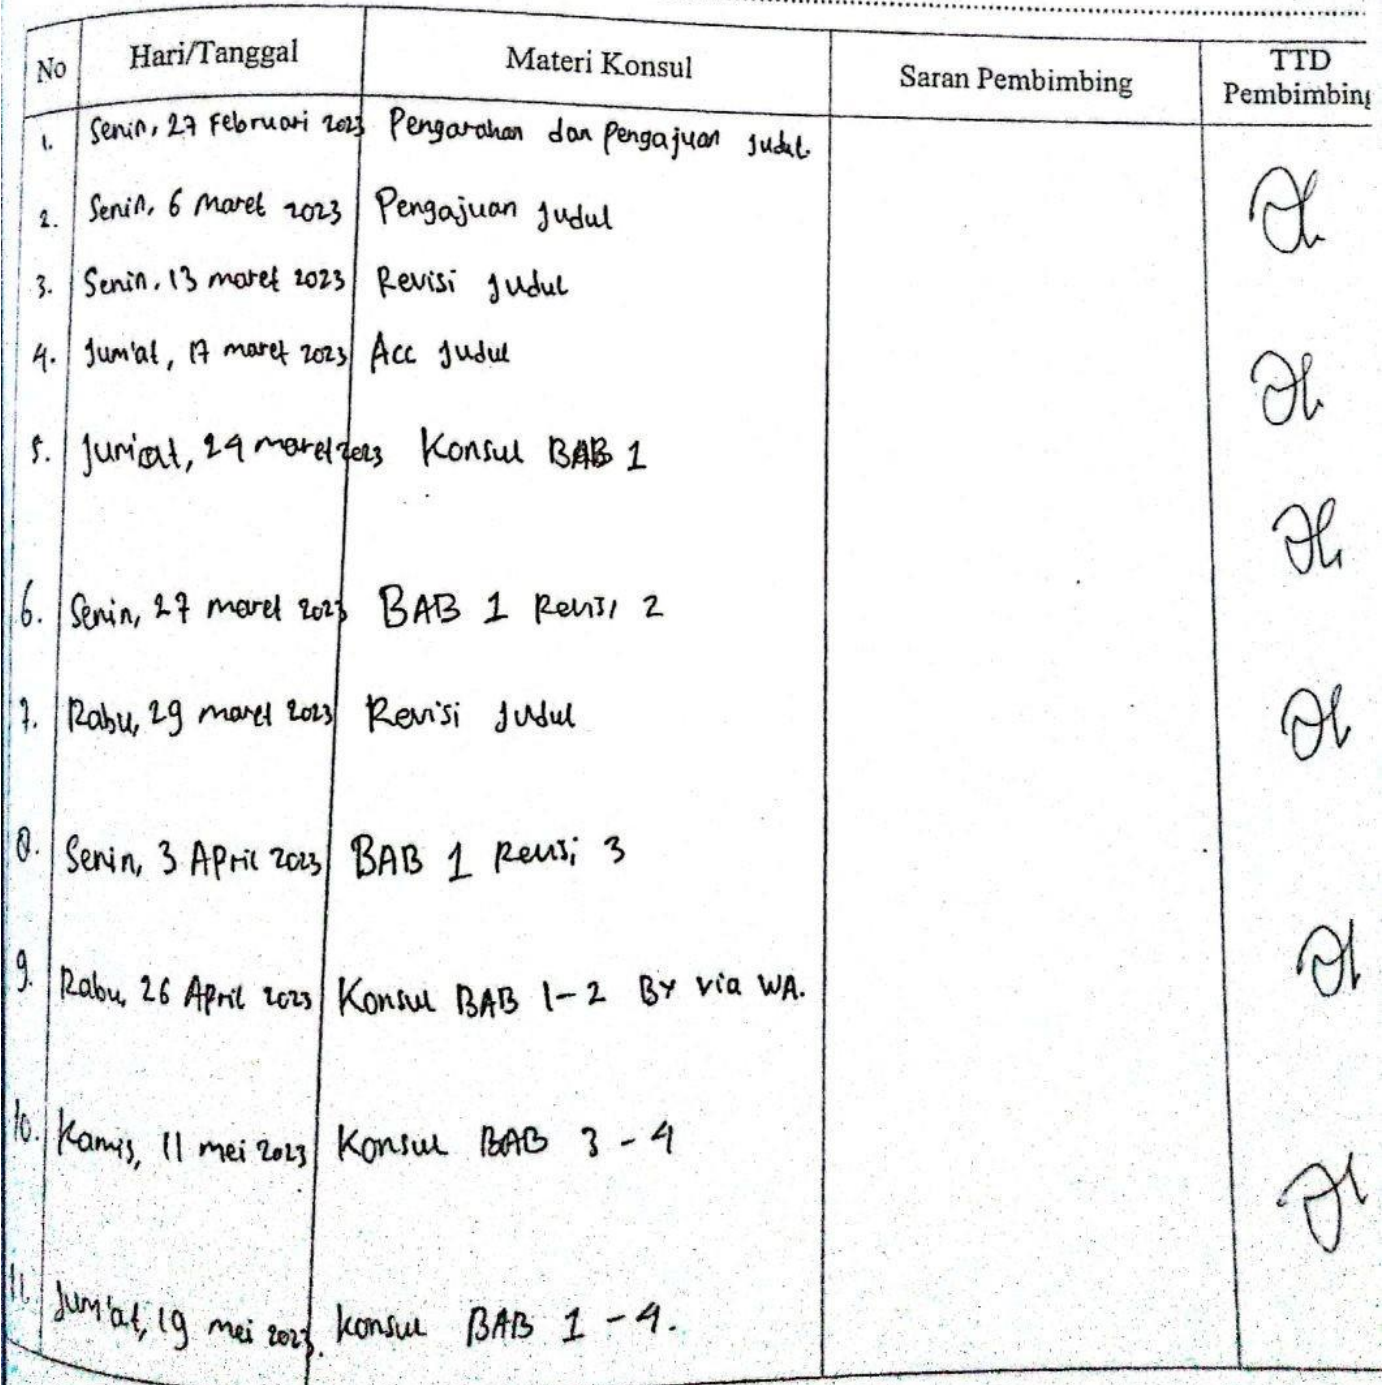 No Hari/Tanggal Materi Konsul Saran Pembimbing TTD Pembimbing
1. Senin, 27 Februari 2023 Pengarahan dan Pengajuan Judul.
2. Senin, 6 Maret 2023 Pengajuan Judul
3. Senin, 13 maret 2023 Revisi Judul
4. Jum'at, 17 maret 2023 Acc Judul
5. Jum'at, 24 maret 2023 Konsul BAB 1
6. Senin, 27 maret 2023 BAB 1 Revisi 2
7. Rabu, 29 maret 2023 Revisi Judul
8. Senin, 3 April 2023 BAB 1 Revisi 3
9. Rabu, 26 April 2023 Konsul BAB 1-2 By via WA.
10. Kamis, 11 mei 2023 Konsul BAB 3-4
11. Jum'at, 19 mei 2023. Konsul BAB 1-4.